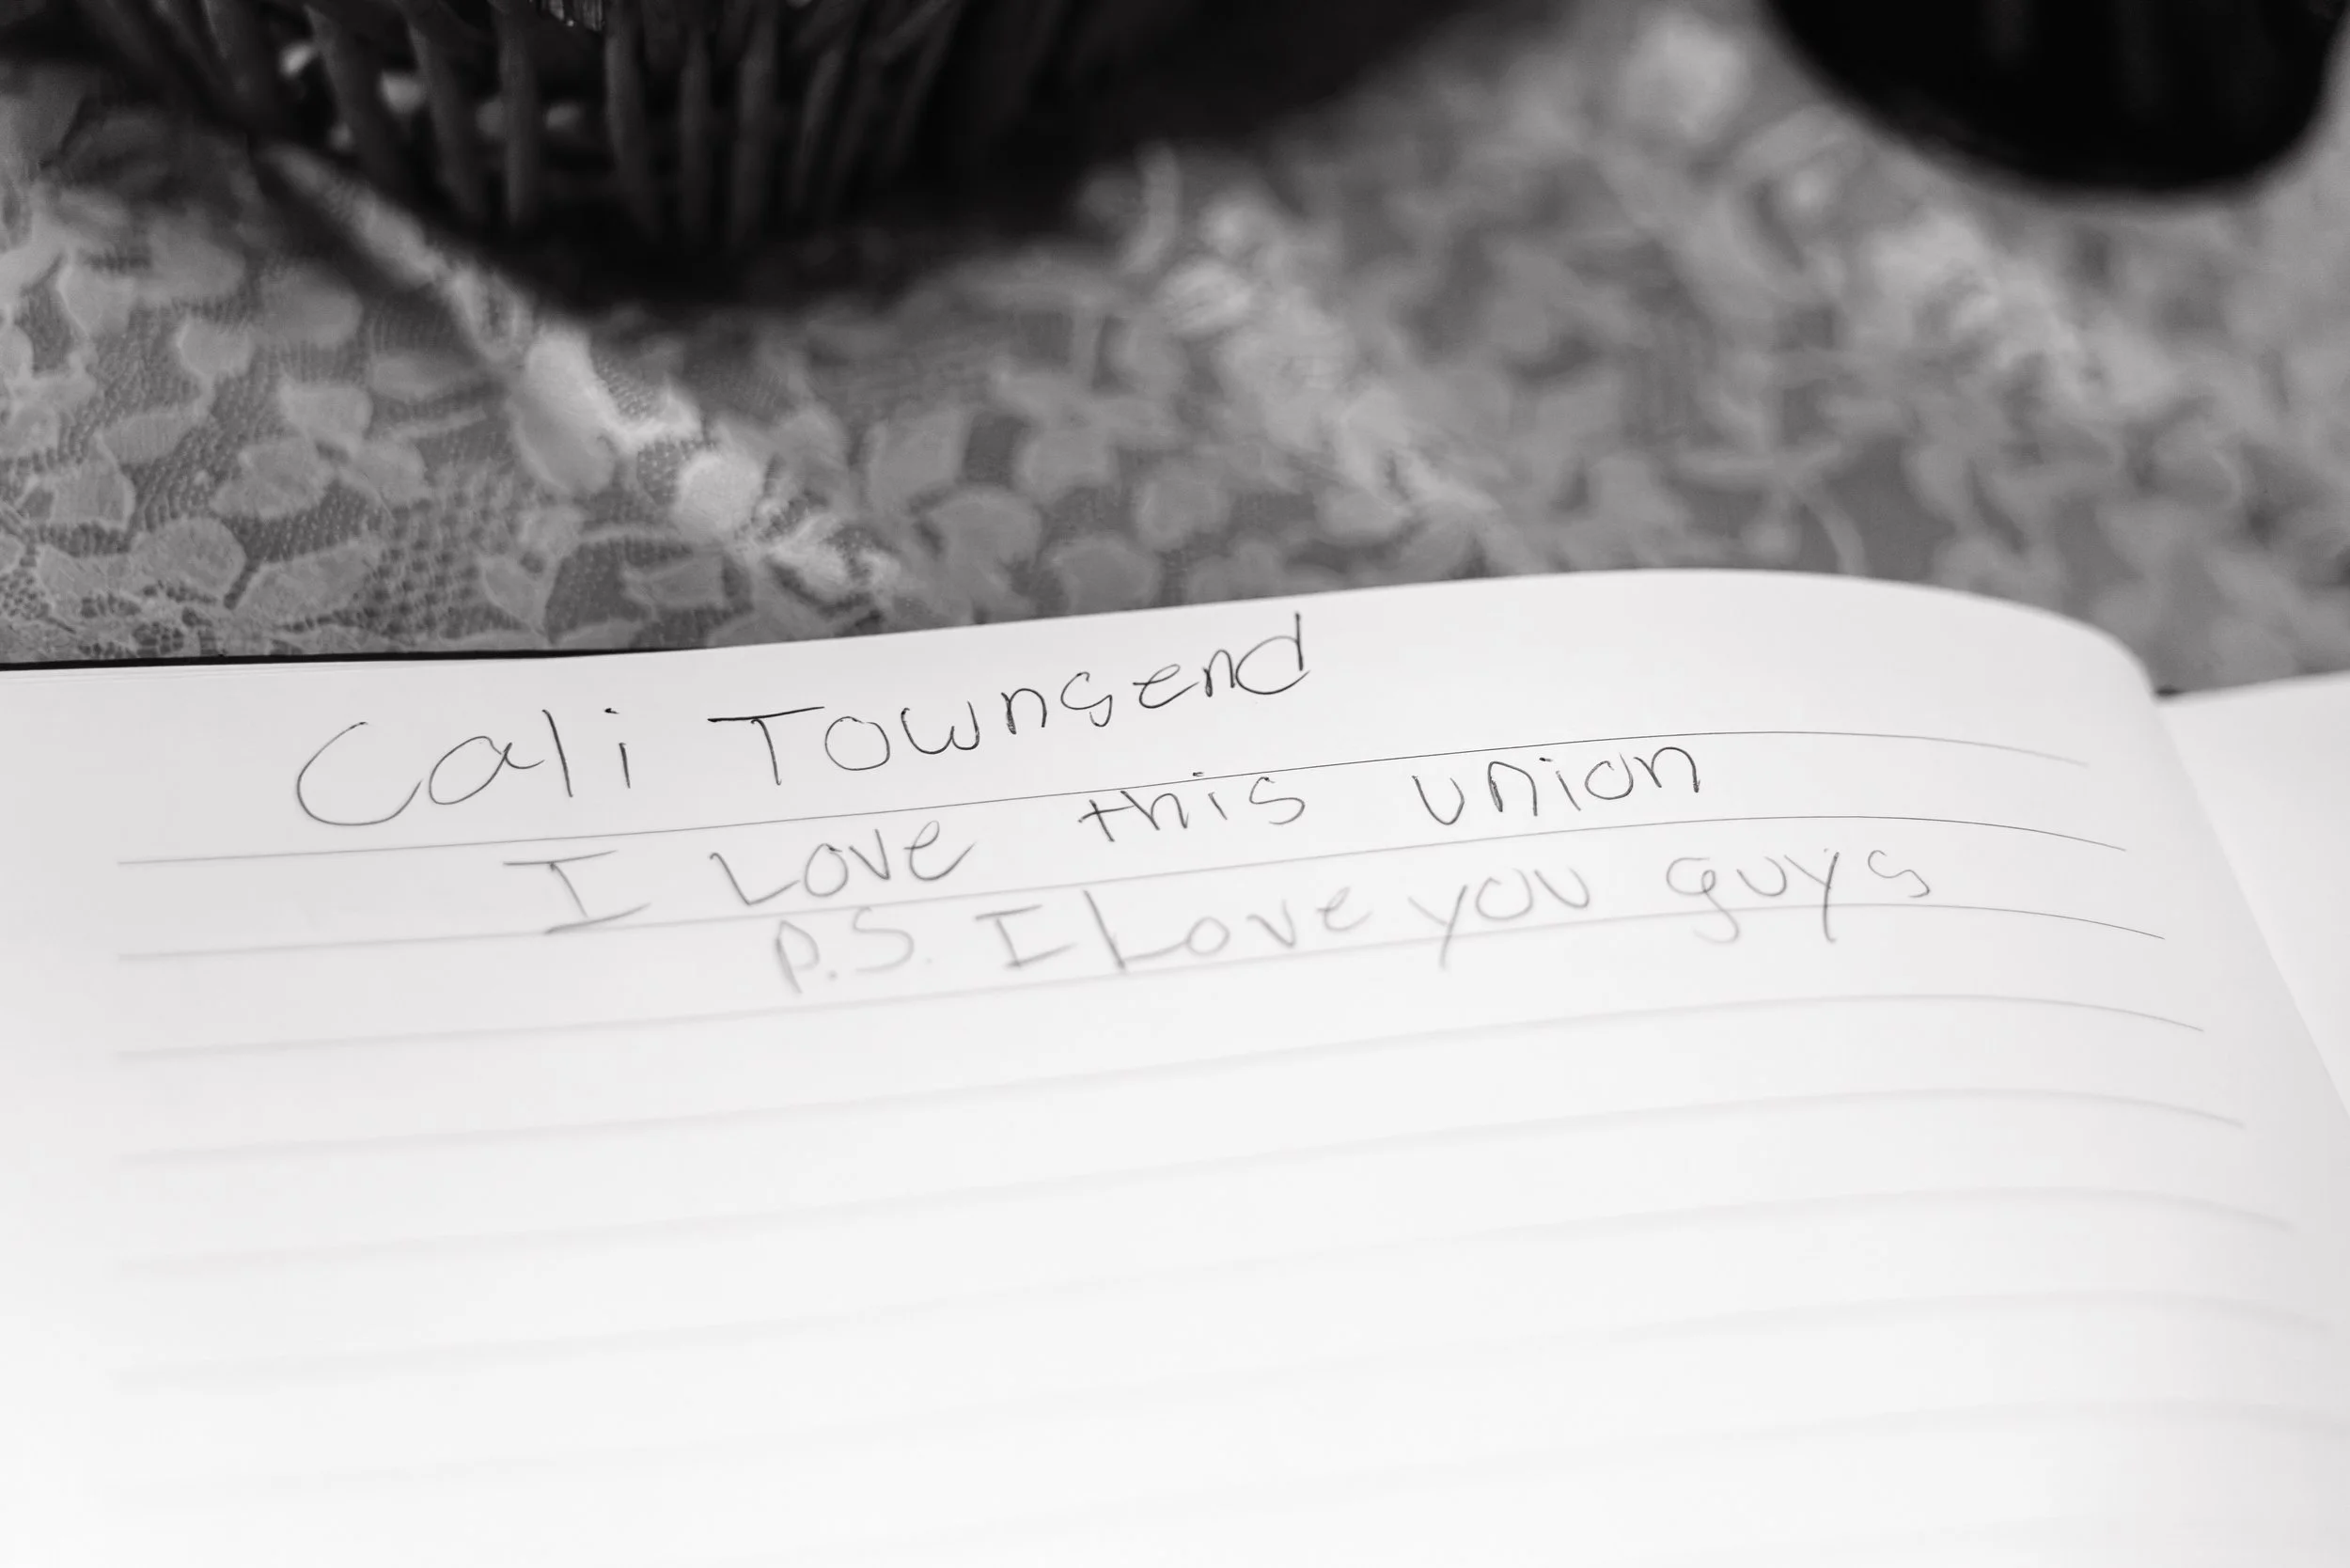 Cali Townsend
I Love this union
P.S. I Love you guys